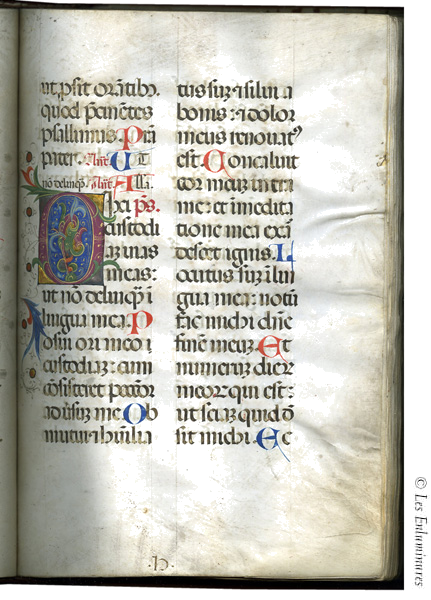 ut ꝓsit orātibꝫ.
quod p̄cinētes
psallimus Prā
piter. Ant̄. Ut
nō delinqꝫ. Ant̄. Illa.
Dixi ps̄.
custodi
aꝫ uias
meas:
ut nō delinqꝫ ī
lingua mea. P
osui ori meo
custodiaꝫ: cum
cōsisteret peccator
aduersuꝫ me. Ob
mutui ⁊ humilia
tus suꝫ ⁊ silui a
bonis: ⁊ dolor
meus renouatꝰ
est. Concaluit
cor meuꝫ intra
me: et ī medita
tione mea exar
descet ignis. L
ocutus suꝫ ī lin
gua mea: notū
fac michi dn̄e
finē meuꝫ. Et
numeruꝫ dierꝫ
meorꝫ qui est:
ut sciaꝫ quid d̄
sit michi. Ec
© Les Enluminures